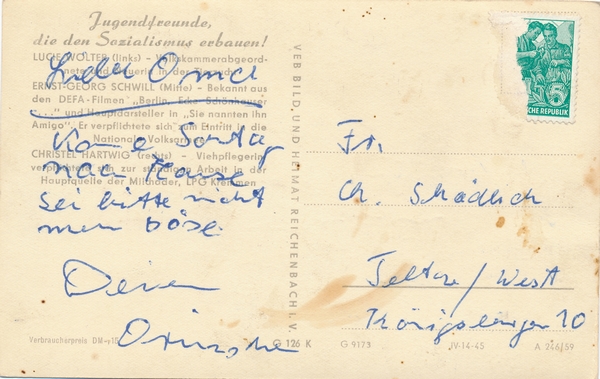 Jugendfreunde,
die den Sozialismus erbauen!
LUCIE WOLTER (links) – Volkskammerabgeord-
nete und in der
ERNST-GEORG SCHWILL (Mitte) – Bekannt aus
den DEFA-Filmen „Berlin, Ecke Schönhauser
..." und Hauptdarsteller in „Sie nannten ihn
Amigo". Er verpflichtete sich zum Eintritt in die
Nationale Volksarmee
CHRISTEL HARTWIG (rechts) – Viehpflegerin,
verpflichtete sich zur ständigen Arbeit in der
Hauptquelle der Milchader, LPG Kremmen
Liebe Oma
Komme Sontag
nach Hause
sei bitte nicht
mehr böse.
Verbraucherpreis DM -,10
VEB BILD UND HEIMAT REICHENBACH i. V.
G 126 K
5
CHE REPUBLIK
Fr.
Ch. Schädlich
Teltow/West
10
G 9173
IV-14-45
A 246/59